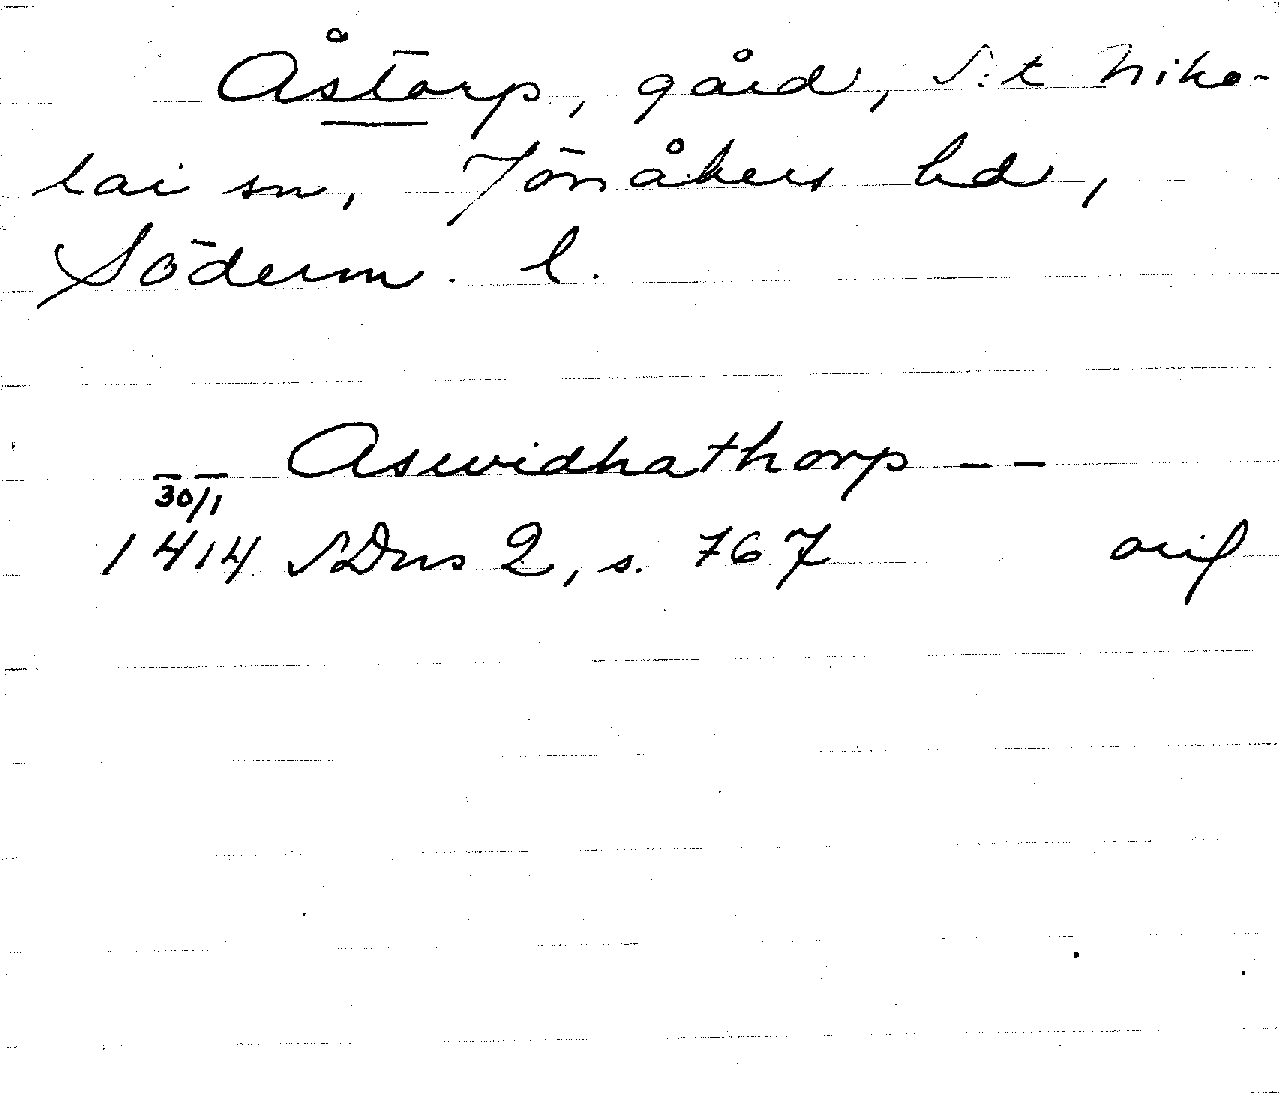 Åstorp, gård, S:t Niko-
lai sn, Jönåkers hd,
Söderm. l.
-- Aswidhathorp --
30/1
1414 SDns 2, s. 767 orig